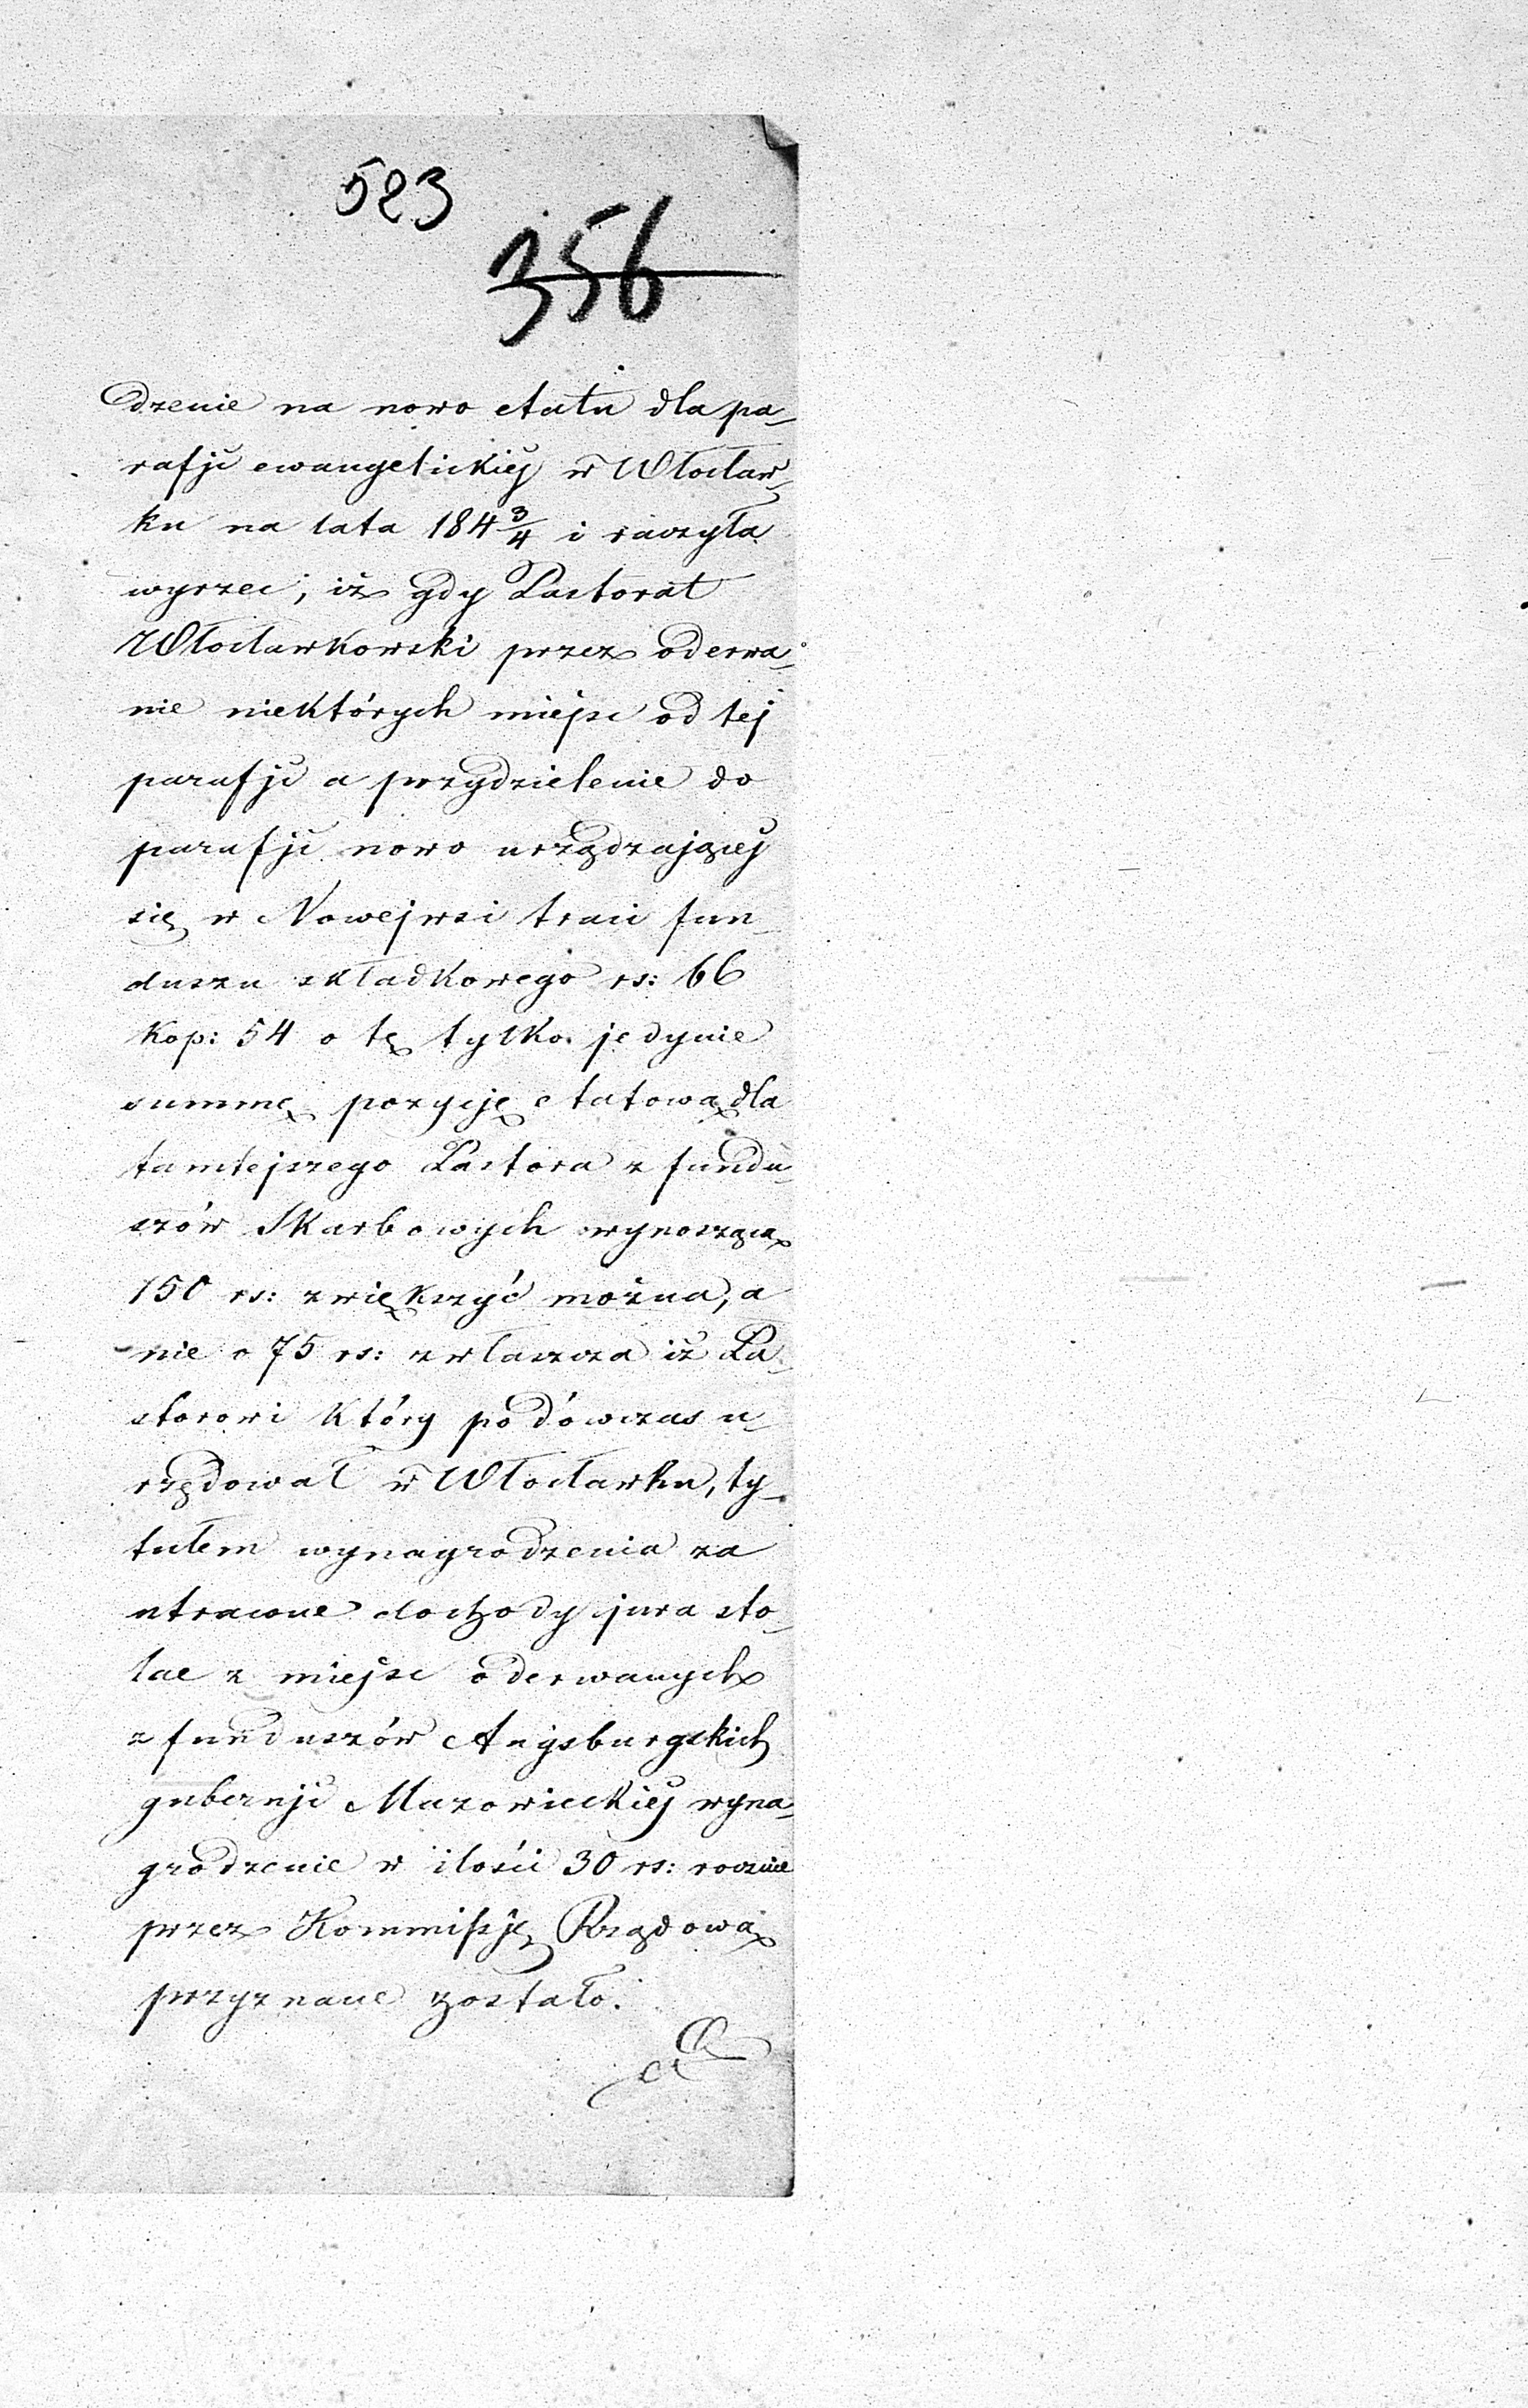 523
356
dzenie na nowo etatu dla pa-
rafji ewangelickiej w Włocław-
ku na lata 184 3/4 i raczyła
wyrzec, iż gdy Pastorat
Włocławkowski przez oderwa-
nie niektórych miejsc od tej
parafji a przydzielenie do
parafji nowo urządzającej
się w Nowejwsi traci fun-
duszu składkowego rs: 66
kop: 54 o tę tylko jedynie
summę pozycję etatową dla
tamtejszego Pastora z fundu-
szów Skarbowych wynoszącą
150 rs: zwiększyć można, a
nie o 75 rs: zwłaszcza iż Pa-
storowi który podówczas u-
rzędował w Włocławku, ty-
tułem wynagrodzenia za
utracone dochody jura sto-
lae z miejsc oderwanych
z funduszów Augsburgskich
gubernji Mazowieckiej wyna-
grodzenie w ilości 30 rs: rocznie
przez Kommissję Rządową
przyznane zostało.